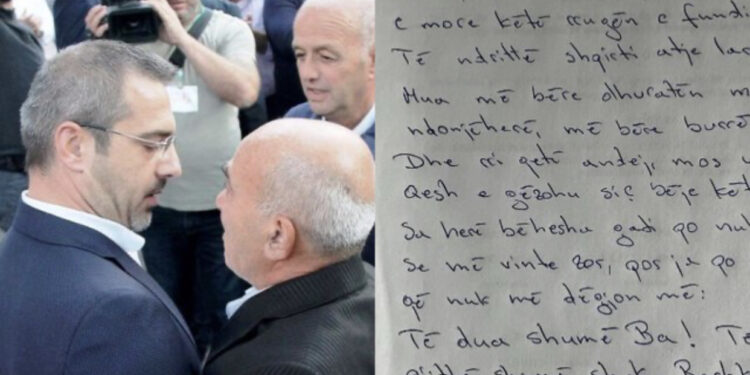 e more këtë rrugën e fundi
Të ndrittë shpirti atje lar
Mua më bëre dhuratën m
ndonjëherë, më bëre burrë
Dhe rri qetë andej, mos
Qesh e gëzohu siç bëje kët
Sa herë bëhesha gadi po nuk
Se më vinte zor, por ja po
që nuk më dëgjon më:
Të dua shumë Ba! Të